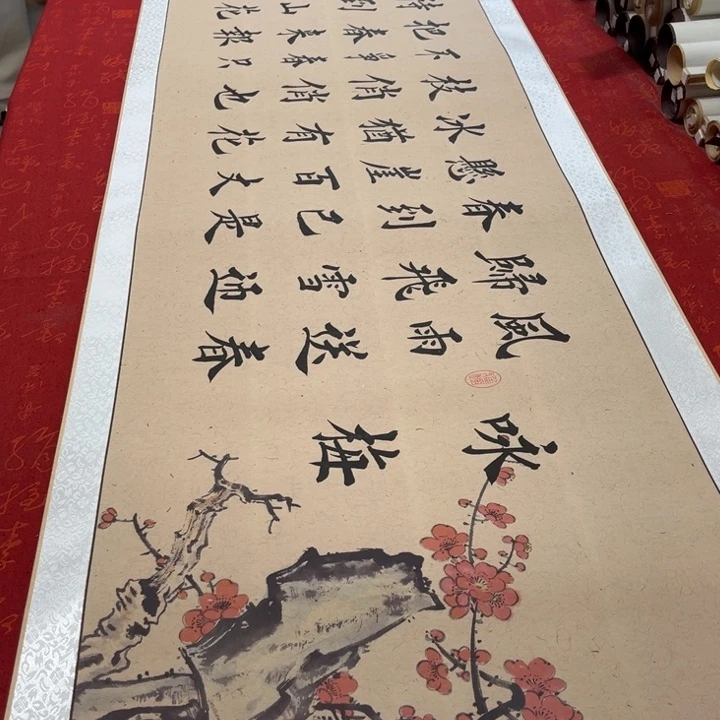 咏梅
風雨送春
歸飛雪迎
春到已是
懸崖百丈
冰猶有花
枝俏俏也
不爭春只
把春來報
到山花